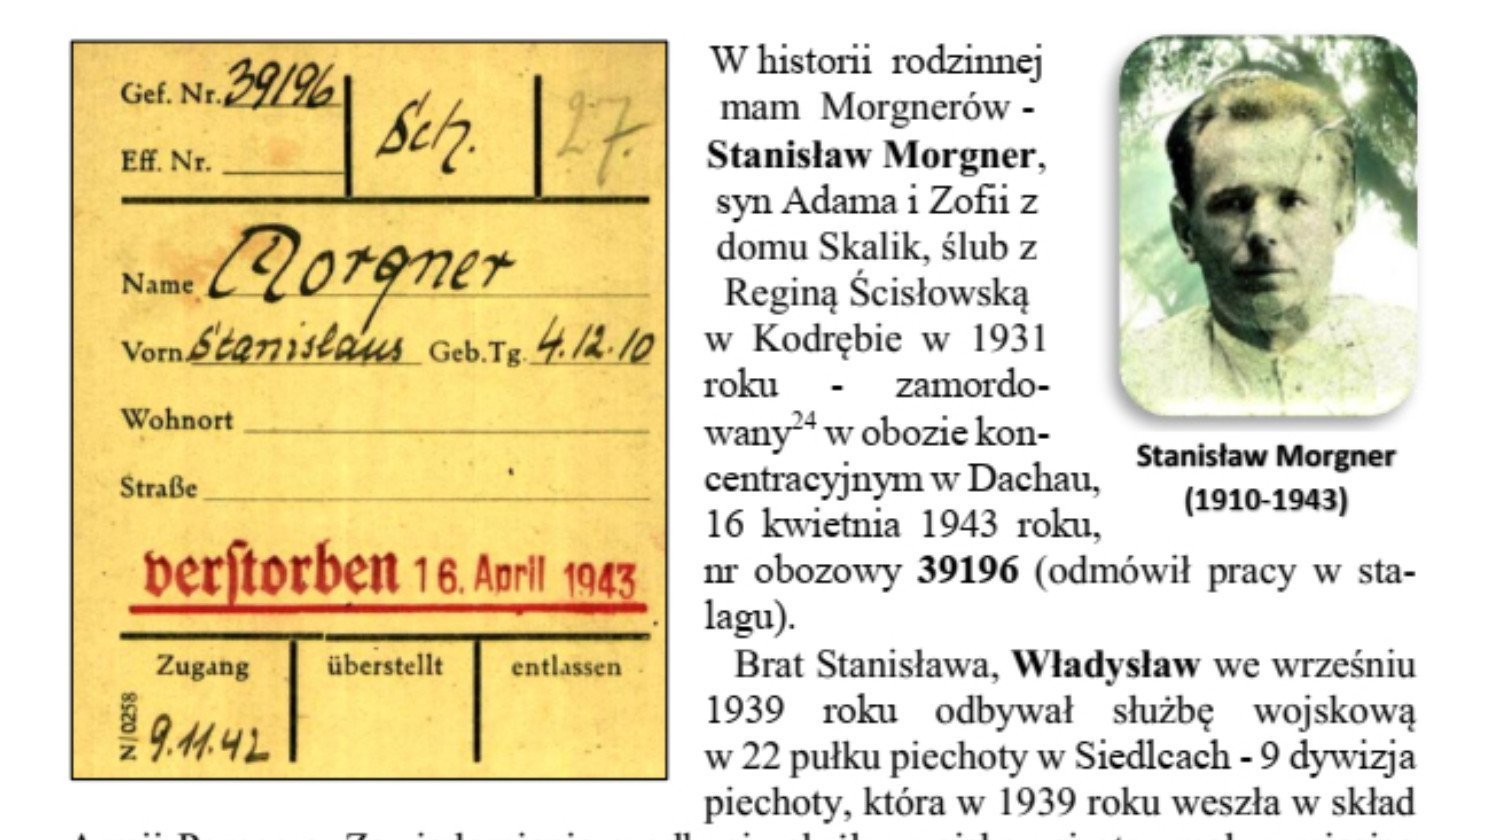 Gef. Nr. 39196
Eff. Nr.
Sch.
27.
Name Morgner
Vorn. Stanislaus Geb.Tg. 4.12.10
Wohnort
Straße
verstorben 16. April 1943
Zugang überstellt entlassen
N/0258
9.11.42
W historii rodzinnej
mam Morgnerów -
Stanisław Morgner,
syn Adama i Zofii z
domu Skalik, ślub z
Reginą Ścisłowską
w Kodrębie w 1931
roku - zamordo-
wany24 w obozie kon-
centracyjnym w Dachau,
16 kwietnia 1943 roku,
nr obozowy 39196 (odmówił pracy w sta-
lagu).
Stanisław Morgner
(1910-1943)
Brat Stanisława, Władysław we wrześniu
1939 roku odbywał służbę wojskową
w 22 pułku piechoty w Siedlcach - 9 dywizja
piechoty, która w 1939 roku weszła w skład